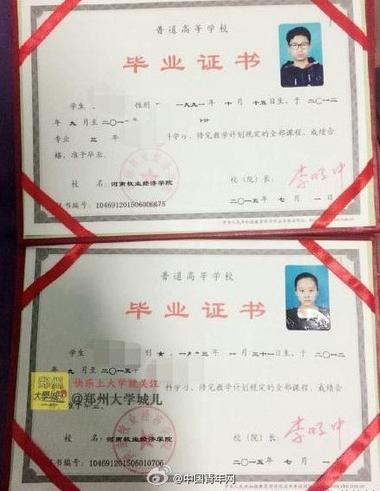 普通高等学校
毕业证书
学生 性别 一九九一年 十 月 十五日生，于二〇一二
年 九 月至二〇一
专业 三 年 科学习，修完教学计划规定的全部课程，成绩合
格，准予毕业。
校 名：河南牧业经济学院 校（院）长：李明中
证书编号：104691201506006675 二〇一五年 七 月 一 日
普通高等学校
毕业证书
学生 别 女，一九 三 年 一 月 三十一日生，于二〇一二
年 九 月至二〇一五年
科学习，修完教学计划规定的全部课程，成绩合
快乐上大学就关注
郑州
大學城
@郑州大学城儿
校 名：河南牧业经济学院 校（院）长：李明中
证书编号：104691201506010706 二〇一五年 七 月 一 日
@中国青年网